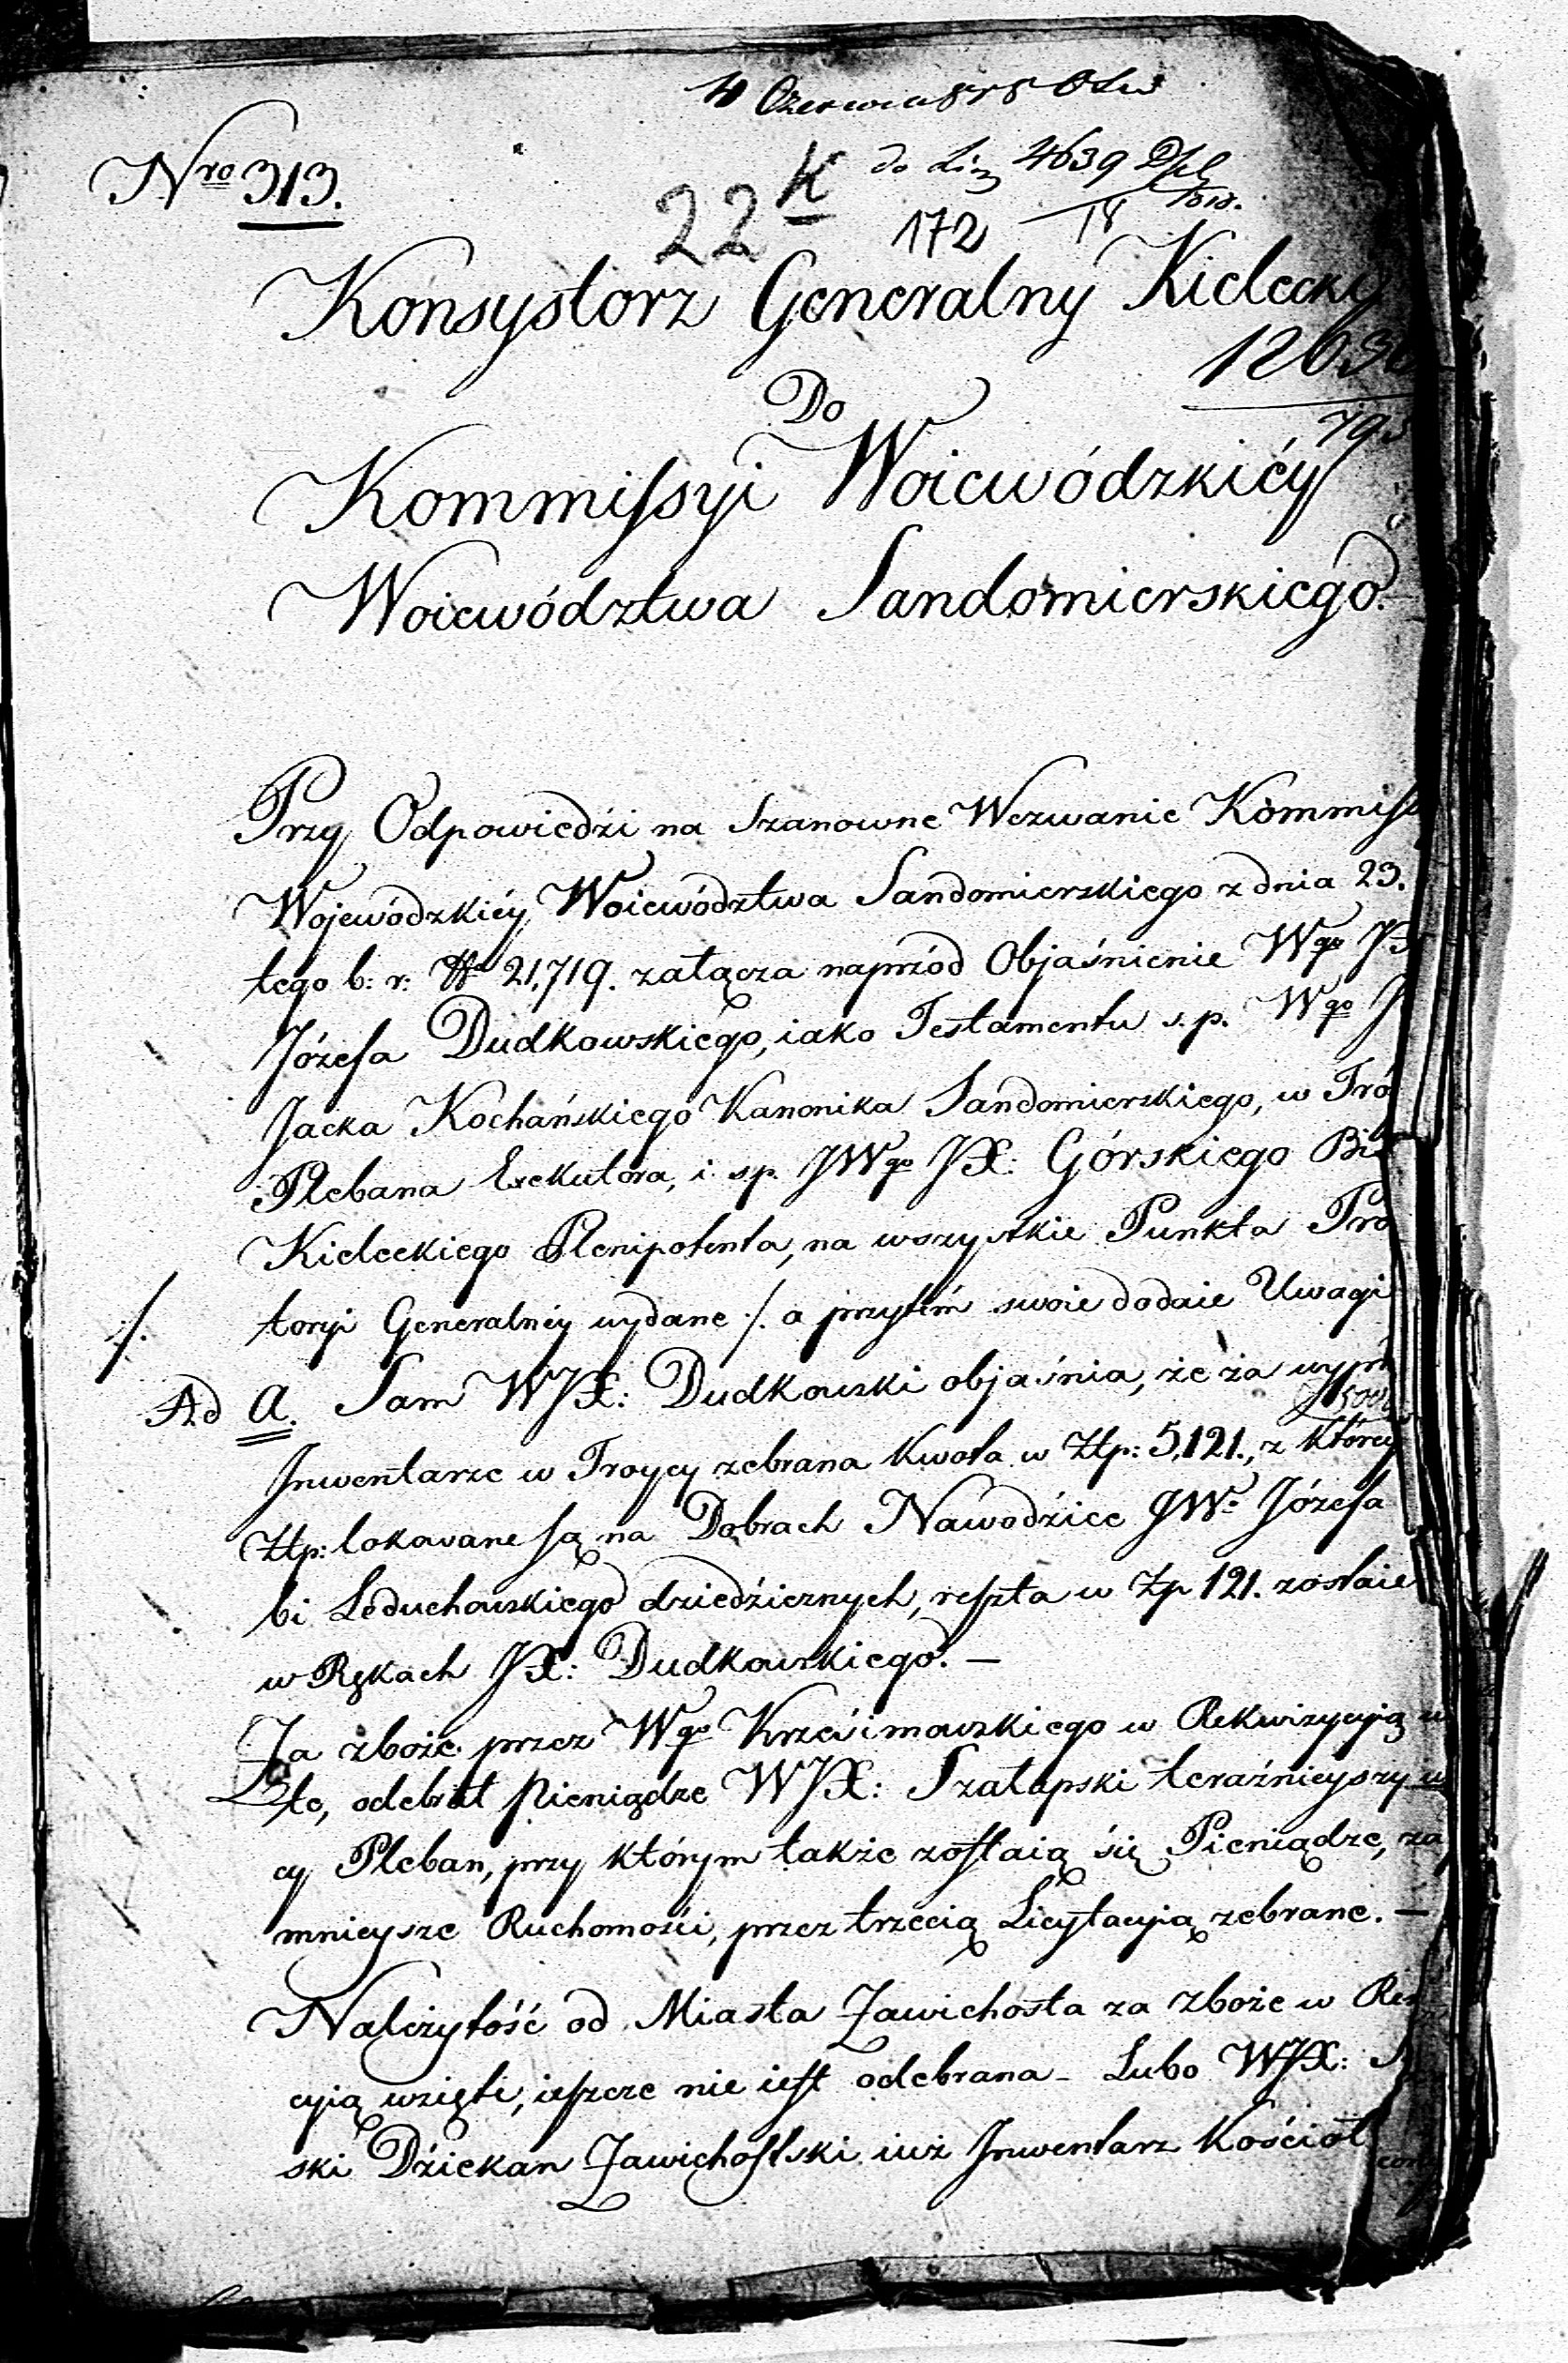 4 Czerwca 818
Nro 313.
22 K
do Liz 4639
172
18
Konsystorz Generalny Kielecky
Do
Kommissyi Woiewódzkiéy
Woiewództwa Sandomierskiego.
Przy Odpowiedźi na Szanowne Wezwanie Kommiss
Wojewódzkiéy Woiewództwa Sandomierskiego z dnia 23.
tego b: r: No 21,719. załącza naprzód Objaśnienie Wgo JX
Józefa Dudkowskiego, iako Testamentu s.p. Wgo J
Jacka Kochańskiego Kanonika Sandomierskiego, w Tró
Plebana Exekutora, i s.p. JWgo JX: Górskiego Bis
Kieleckiego Plenipotenta, na wszystkie Punkta Pro
./. toryi Generalnéy wydane ./. a przytém swoie dodaie Uwagi
Ad a. Sam WJX: Dudkowski objaśnia, że za
Inwentarze w Troycy zebrana Kwota w Złp: 5,121., z którey
Złp: lokowane są na Dobrach Nawodźice JWo Józefa
bi Leduchowskiego dziedźicznych, reszta w Zp 121. zostaie
w Rękach JX: Dudkowskiego. —
Za zboże przez Wgo Krześimowskiego w Rekwizycyią w
te, odebrał Pieniądze WJX: Szałapski teraźnieyszy
cy Pleban, przy którym także zostaią się Pieniądze, za
mnieysze Ruchomośći, przez trzecią Licytacyią zebrane. —
Należytość od Miasta Zawichosta za zboże w Rek
cyią wzięte, ieszcze nie iest odebrana – Lubo WJX: S
ski Dźiekan Zawichostski iuż Inwentarz Kościoł